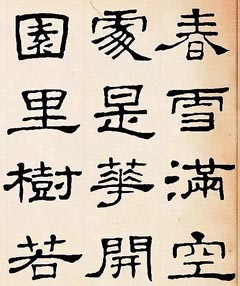 春雪滿空
處是華開
園里樹若